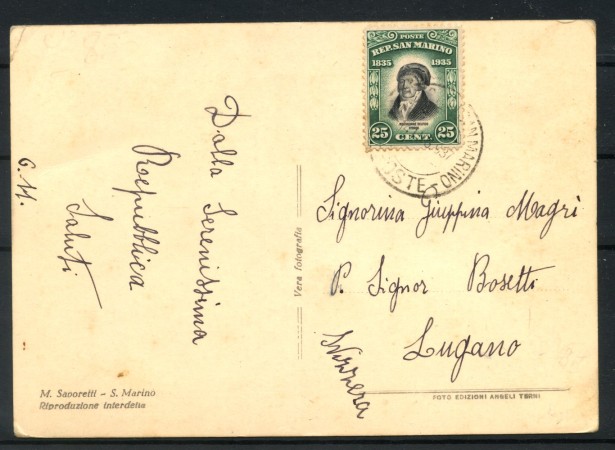 POSTE
REP. SAN MARINO
1835 1935
25 CENT. 25
SAN MARINO
POSTE
Dalla Serenissima
Repubblica
Saluti
G.M.
Vera fotografia
Signorina Giuppina Magri
P. Signor Bosetti
Lugano
Svizzera
M. Saporetti - S. Marino
Riproduzione interdetta
FOTO EDIZIONI ANGELI TERNI